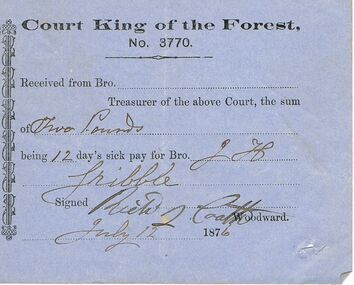 Court King of the Forest,
No. 3770.
Received from Bro.
Treasurer of the above Court, the sum
of Two Pounds
being 12 day's sick pay for Bro. J H
Gribble
Signed Richd J Woodward.
July 12 1876